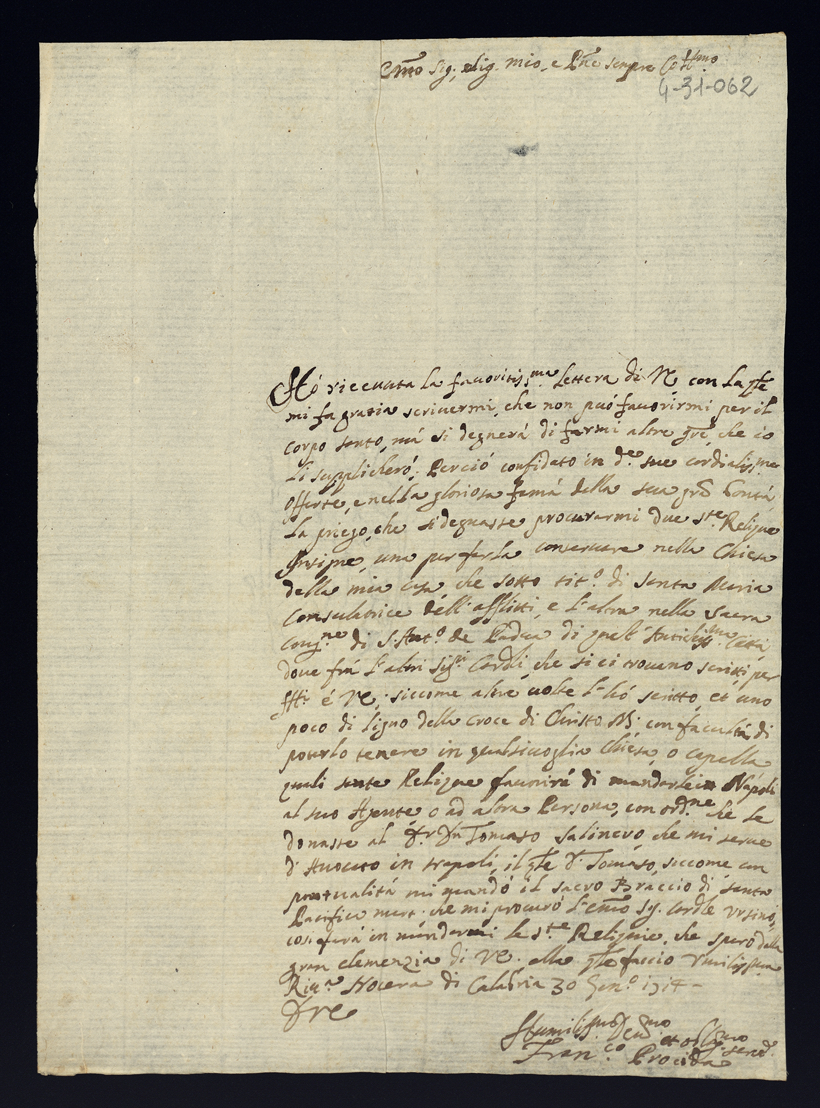 Em̃o Sig.r, Sig. mio, e P̃ne sempre Co
4-31-062
Hó riceuuta la fauoritiss.ma lettera di VE con la q̃le
mi fa gratia scriuermi, che non può fauorirmi per il
corpo santo, má si degnerá di farmi altre gr̃e, che io
li supplicheró; Perció confidato in d.e sue cordialiss.me
offerte, e nella gloriosa fama della sua gr̃ bontá
La priego, che si degnasse procurarmi due s.te Reliquie
Insigne, una per farla conseruare nella Chiesa
della mia casa, che sotto tit.o di santa Maria
Consulatrice dell'afflitti, e l'altra nella sacra
Cong.ne di S. Ant.o de Padua di quest'Antichiss.ma Cittá,
doue frá l'altri Sig.ri Cardli, che si ci trouano scritti, per
é VE, siccome altre uolte l'hó scritto, et uno
poco di ligno della Croce di Christo con facultá di
poterlo tenere in qualsiuoglia Chiesa, o capella
quali sante Reliquie fauorirá di mandarle in Napoli
al suo Agente, o ad altra Persona, con ord.ne che le
donasse al D.r Dn Tomaso Salineró, che mi serue
d'Auocato in Napoli, il q̃le D. Tomaso, siccome con
pontualitá mi mandó il sacro Braccio di santa
Pacifica mart. che mi procuró l'em̃o Sig. Cardle Ursino,
cosi fará in mandarmi le s.te Reliquie, che spero dalla
gran clemenzia di VE. alla q̃le faccio Vmilissima
Riu.a Nocera di Calabria 30 Gen.o 1714 -
Di VE
Humilissimo Deu.mo et
Fran.co Procida